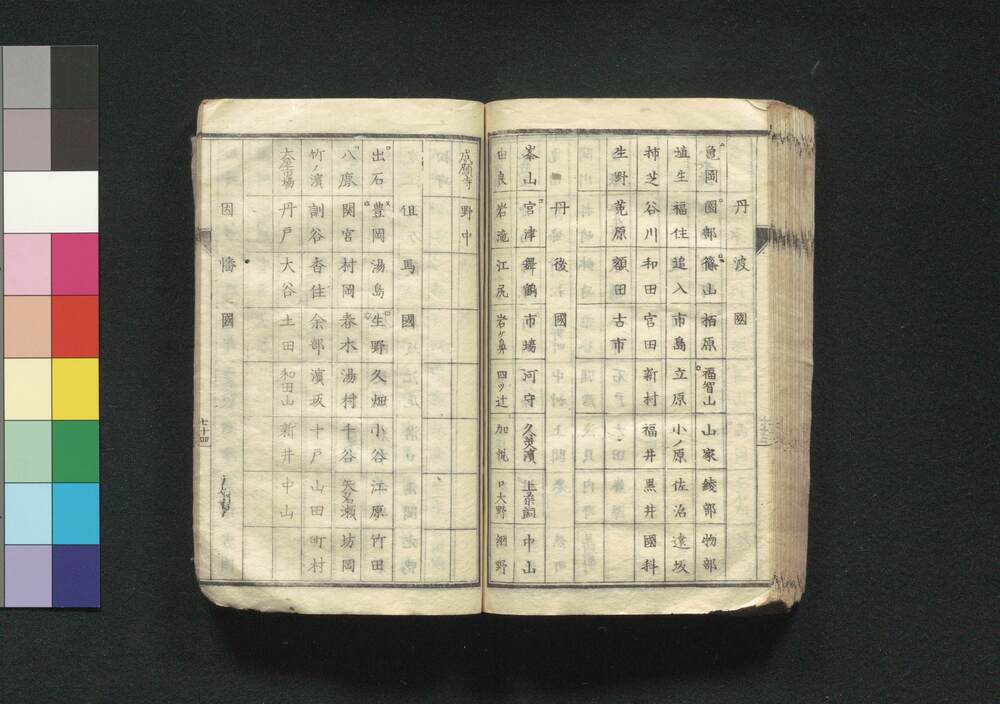 丹波國
亀岡 園部 篠山 栢原 福智山 山家 綾部 物部
埴生 福住 追入 市島 立原 小ノ原 佐治 遠坂
柿芝 谷川 和田 宮田 新村 福井 黒井 國科
生野 菟原 額田 古市
丹後國
峯山 宮津 舞鶴 市場 河守 久美濱 中山
由良 岩滝 江尻 岩ガ鼻 四ツ辻 加悦 口大野 網野
成願寺 野中
但馬國
出石 豊岡 湯島 生野 久畑 小谷 江原 竹田
八鹿 関宮 村岡 春木 湯村 千谷 矢名瀬 坊岡
竹ノ濱 訓谷 香住 余部 濱坂 十戸 山田 町村
丹戸 大谷 土田 和田山 新井 中山
因幡國
七十四